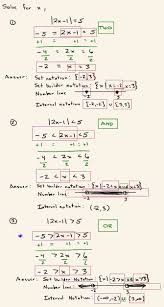 Solve for x,
① |2x-1| = 5 TWO
-5 = 2x-1 = 5
+1 = +1 = +1
-4 = 2x = 6
2 2
-2 = x = 3
Answer: Set notation: {-2, 3}
Set builder notation:
Number line:
-2 3
Interval notation:
② |2x-1| < 5 AND
-5 < 2x-1 < 5
+1 +1 +1
-4 < 2x < 6
2 2
-2 < x < 3
Answer: Set builder notation:
Number line:
-2 3
Interval notation: (-2, 3)
③ |2x-1| > 5 OR
-5 > 2x-1 > 5
+1 +1 +1
-4 > 2x > 6
2 2
-2 > x > 3
Answer: Set builder notation:
Number line:
-2 3
Interval Notation: (-∞, -2) ∪ (3, ∞)